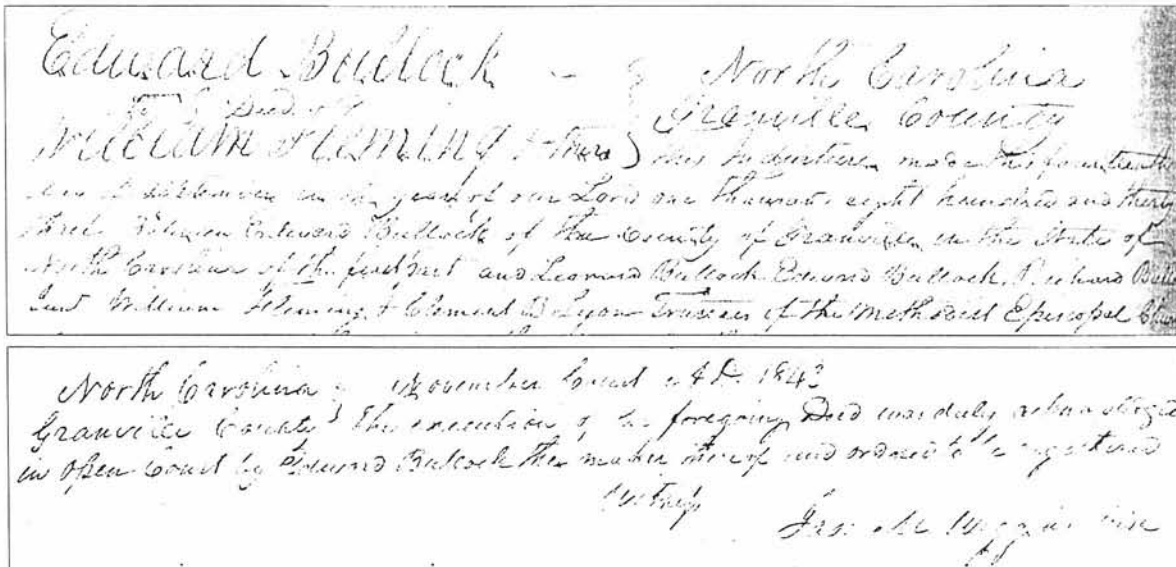 Edward Bullock North Carolina
To Deed Granville County
William Fleming & others this Indenture made this fourteenth
day of in the year of our Lord one thousand eight hundred and thirty
three Between Edward Bullock of the County of Granville in the State of
North Carolina of the first part and Leonard Bullock Edward Bullock Richard
and William Fleming & Clement Lyon Trustees of the Methodist Episcopal
North Carolina November Court A.D. 1843
Granville County The execution of the foregoing Deed was duly
in open Court by Edward Bullock the maker thereof and ordered to be registered
Jas. M. Wiggins